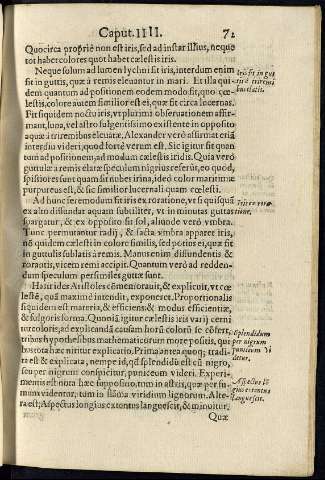 Caput. IIII. 72
Quocirca propriè non est iris, sed ad instar illius, neque
tot habet colores quot habet cælestis iris.
Neque solum ad lumen lychni sit iris, interdum enim
sit in guttis, quæ à remis eleuantur in mari. Et illa qui
dem quantum ad positionem eodem modo fit, quo cæ-
lestis, colore autem similior est ei, quæ fit circa lucernas.
Fit siquidem noctu iris, vt plurimi obseruationem affir-
mant, luna, vel astro fulgentissimo existente in opposito
aquæ à triremibus eleuatæ. Alexander verò affirmat etiã
interdiu videri, quod fortè verum est. Sic igitur fit quan
tum ad positionem, ad modum cælestis iridis. Quia verò
guttulæ à remis elatæ speculum nigrius referũt, eo quod,
spissiores sunt quam sit nubes irina, ideò color maritimæ
purpureus est, & sic similior lucernali quam cælesti.
Ad hunc seremodum fit iris ex roratione, vt si quisquã
ex alto diffundat aquam subtiliter, vt in minutas guttas
spargatur, & ex opposito fit sol, aliunde verò vmbra.
Tunc permutantur radij, & facta vmbra apparet iris,
nõ quidem cælesti in colore similis, sed potius ei, quæ fit in
guttulis sublatis à remis. Manus enim diffundentis &
rorantis, vicem remi accipit. Quantum verò ad redden-
dum speculum persimiles guttæ sunt.
Has irides Aristoles cõmemorauit, & explicuit, vt cæ
lestẽ, quã maximè intendit, exponeret. Proportionalis
siquidem est materia, & efficiens, & modus efficientiæ,
& fulgoris forma. Quoniã igitur cælestis iris varij cerni
tur coloris, ad explicandã causam horũ colorũ sic cõsert,
tribus hypothesibus mathematicorum more positis, qui
bus tota hæc nititur explicatio. Prima antea quoq; tradi-
ta est & explicata, nempe id, qđ splendidũ est cũ nigro,
seu per nigrum conspicitur, puniceum videri. Experi-
mentis est nota hæc suppositio, tum in astris, quæ per fu-
mum videntur, tum in flãma viridium lignorum. Alte-
ra est; Aspectus longius extentus languescit, & minuitur.
Quæ
Iris fit in gut
tis è triremi
bus elatis.
Iris ex rora
tione.
Splendidum
per nigrum
puniceum vi
detur.
Aspectus lõ
gius extentus
languescit.